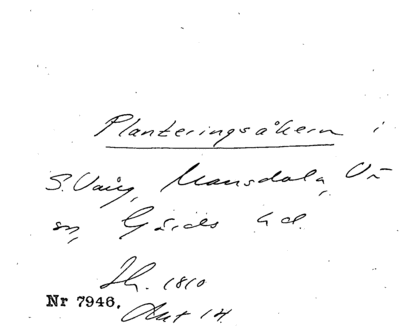 Planteringsåkern i
S. Vång, Mansdala, Vä
sn, Gärds hd.
Sk. 1810
Nr 7946.
Akt 14